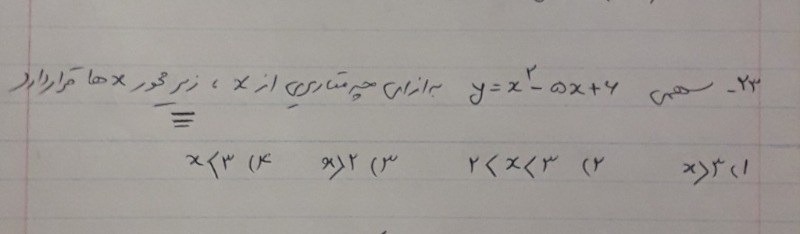 ۲۳- سهمی y = x² - ۵x + ۶ به ازای چه مقداری از x ، زیر محور x ها قرار دارد
۱) x > ۳ ۲) ۲ < x < ۳ ۳) x > ۲ ۴) x < ۳